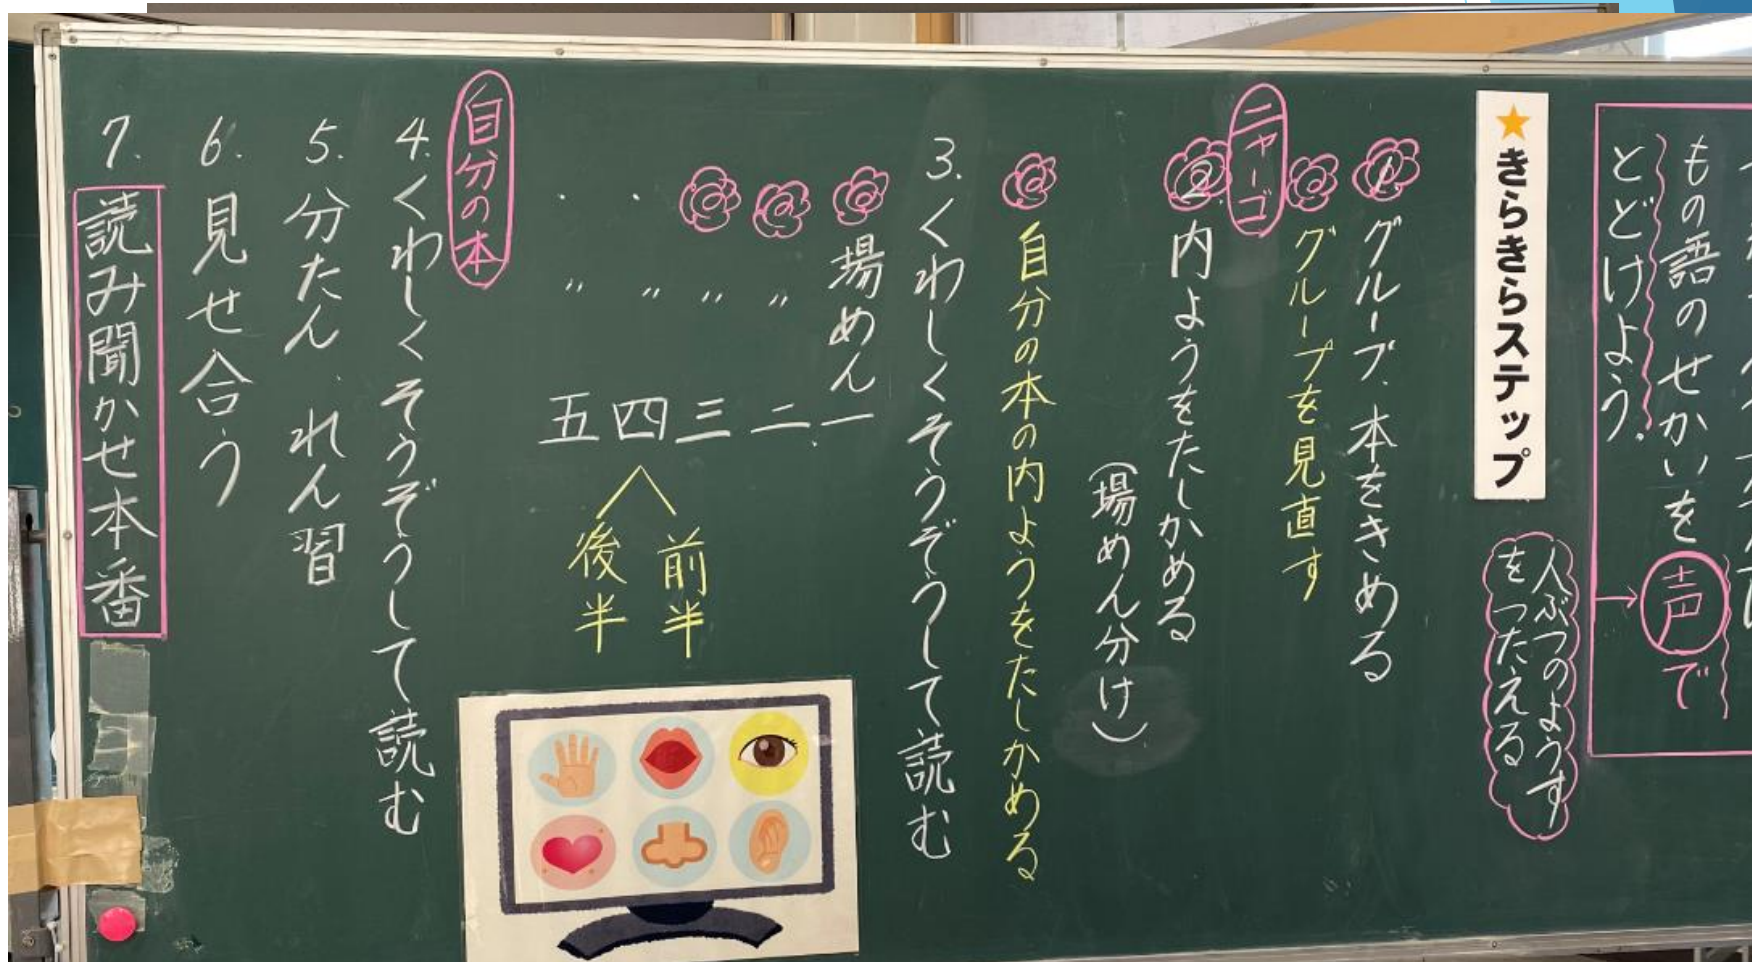 もの語のせかいを声で
とどけよう。
人ぶつのようす
をつたえる
★きらきらステップ
1. グループ、本をきめる
グループを見直す
ニャーゴ
2. 内ようをたしかめる
(場めん分け)
自分の本の内ようをたしかめる
3. くわしくそうぞうして読む
場めん一
〃 二
〃 三
・ 〃 四
前半
後半
・ 〃 五
自分の本
4. くわしくそうぞうして読む
5. 分たん、れん習
6. 見せ合う
7. 読み聞かせ本番